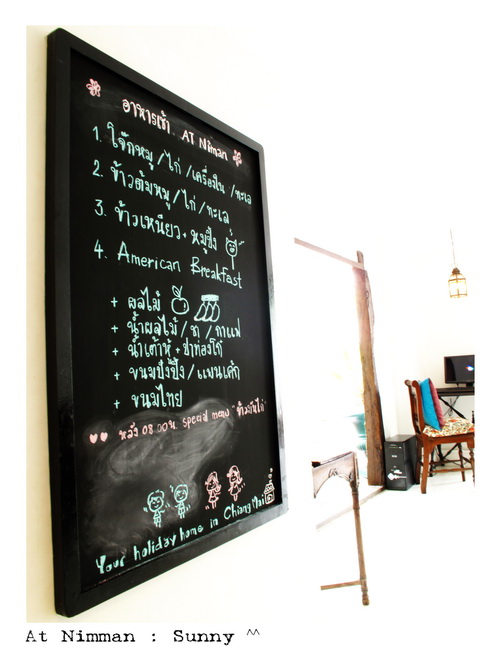 อาหารเช้า AT Niman
1. โจ๊กหมู/ไก่/เครื่องใน/ทะเล
2. ข้าวต้มหมู/ไก่/ทะเล
3. ข้าวเหนียว+หมูปิ้ง
4. American Breakfast
+ ผลไม้
+ น้ำผลไม้/ชา/กาแฟ
+ น้ำเต้าหู้+ปาท่องโก๋
+ ขนมปังปิ้ง/แพนเค้ก
+ ขนมไทย
หลัง 08.00น. special menu "ข้าวมันไก่"
Your holiday home in Chiang Mai
At Nimman : Sunny ^^